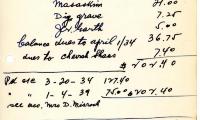 Masaskim 21.00
Dig grave 7.25
J. Earth 5.00
balance dues to april 1/34 36.75
dues to chevah Shaas 7.40
$202.40
Pd rec 3-20-34 127.40
" 1-4-39 75.00 $202.40
see acc. Mrs D. Misrock